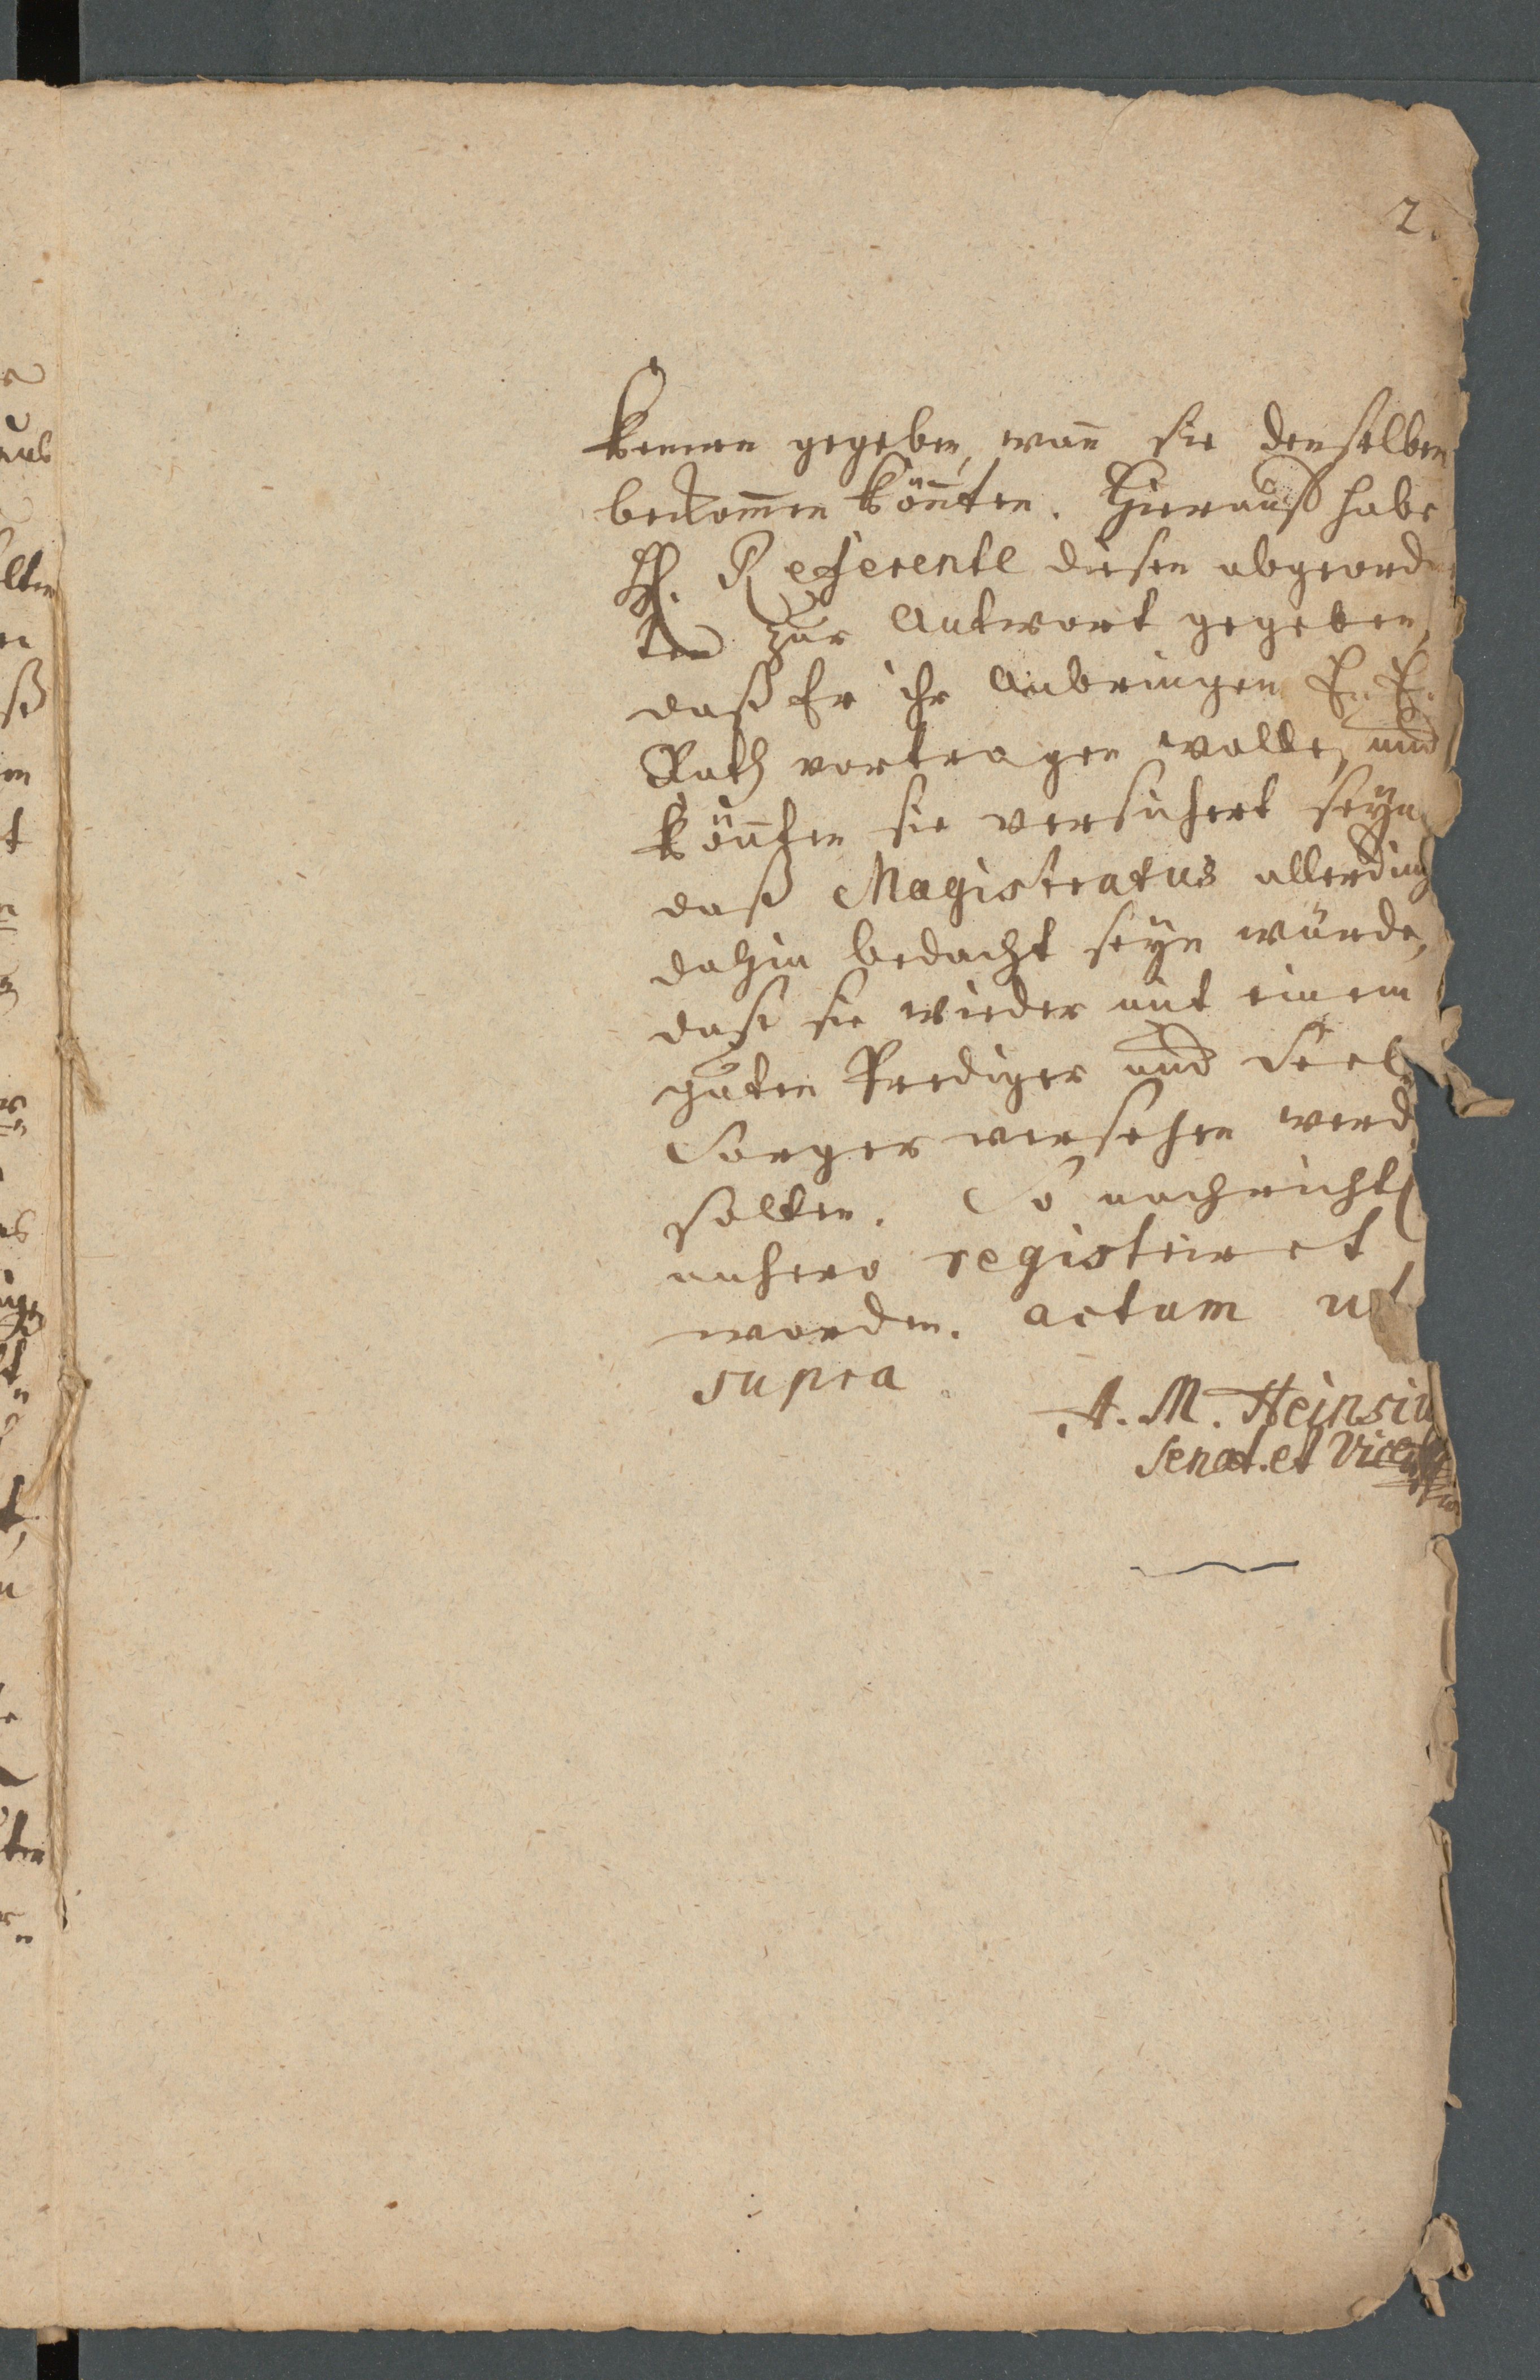 2.
kennen gegeben, wan̄ sie denselben
bekom̄en kön̄ten. Hierauß habe
H. Referente diesen abgeord
ten zur Antwort gegeben,
daß Er ihr Anbringen E. E.
Rath vortragen wolle, und
kön̄ten sie versichert seyn
daß Magistratus allerding
dahin bedacht seyn würde,
daß sie wieder mit einem
guten Prediger und Seel
Sorger versehen werd
solten. So nachrichtl
anhero registriret
worden. actum ut
supra.
A. M. Heinsiu
Senat. et